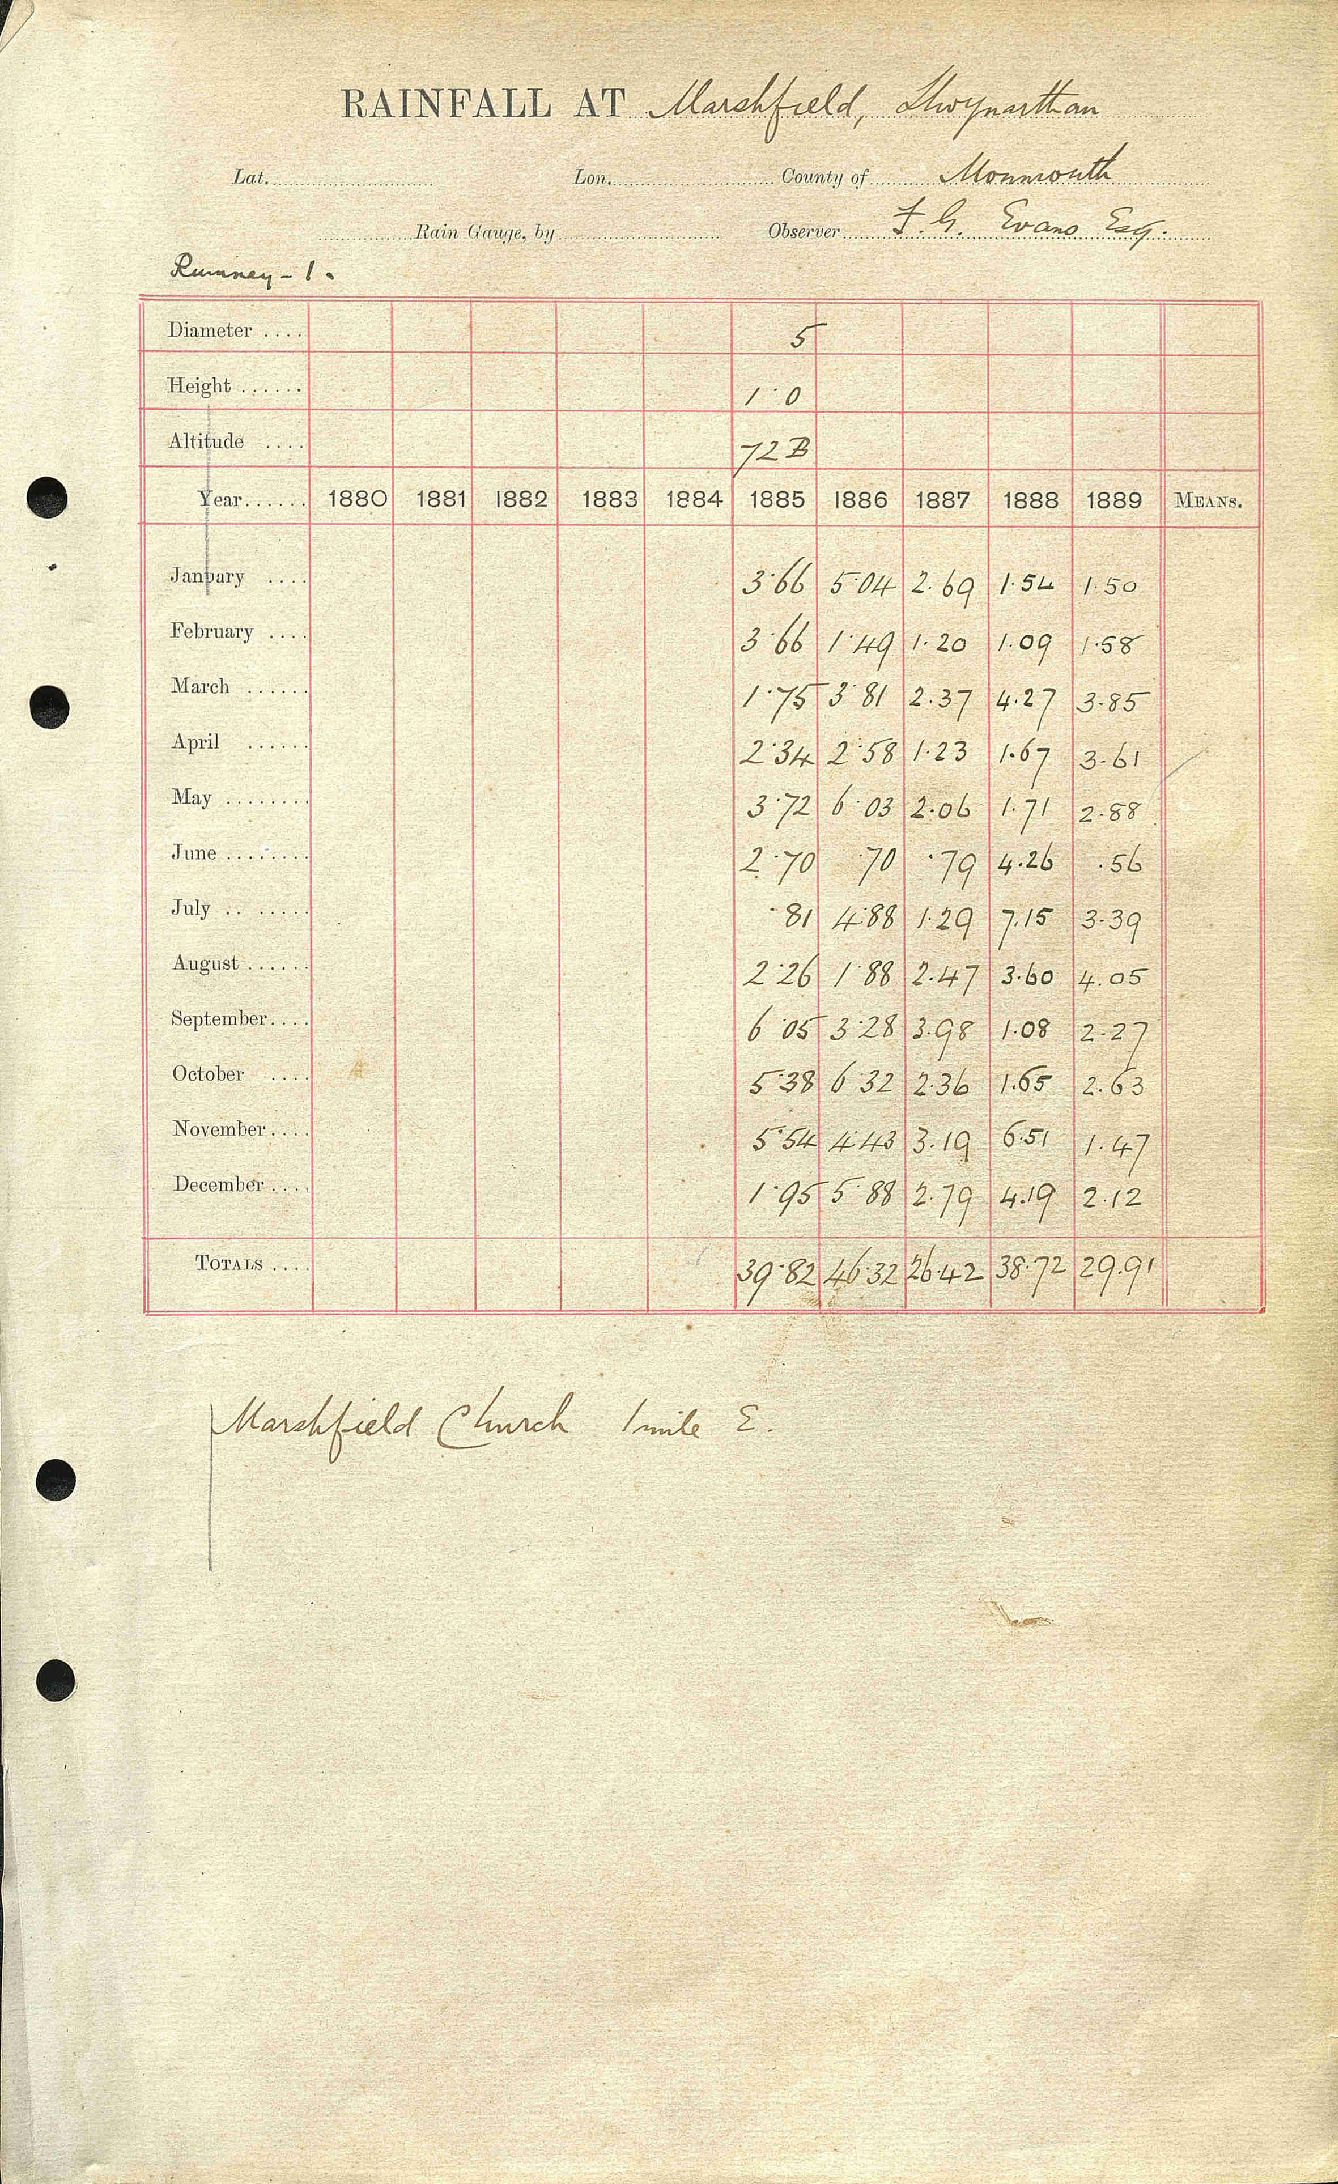 RAINFALL AT Marshfield, Llwynarthan
Lat. Lon. County of Monmouth
Rain Gauge, by Observer F. G. Evans Esq.
Rumney - 1.
Diameter .... 5
Height ...... 1·0
Altitude .... 72 B
Year...... 1880 1881 1882 1883 1884 1885 1886 1887 1888 1889 MEANS.
January .... 3·66 5·04 2.69 1.54 1.50
February .... 3·66 1·49 1.20 1.09 1.58
March ...... 1·75 3·81 2.37 4.27 3.85
April ...... 2·34 2·58 1.23 1.67 3.61
May ........ 3·72 6·03 2.06 1.71 2.88
June ........ 2·70 ·70 ·79 4.26 .56
July .. ...... ·81 4·88 1.29 7.15 3.39
August ...... 2·26 1·88 2.47 3.60 4.05
September.... 6·05 3·28 3.98 1.08 2.27
October .... 5·38 6·32 2.36 1.65 2.63
November.... 5·54 4·43 3.19 6.51 1.47
December .... 1·95 5·88 2.79 4.19 2.12
TOTALS .... 39·82 46·32 26·42 38·72 29.91
Marshfield Church 1 mile E.